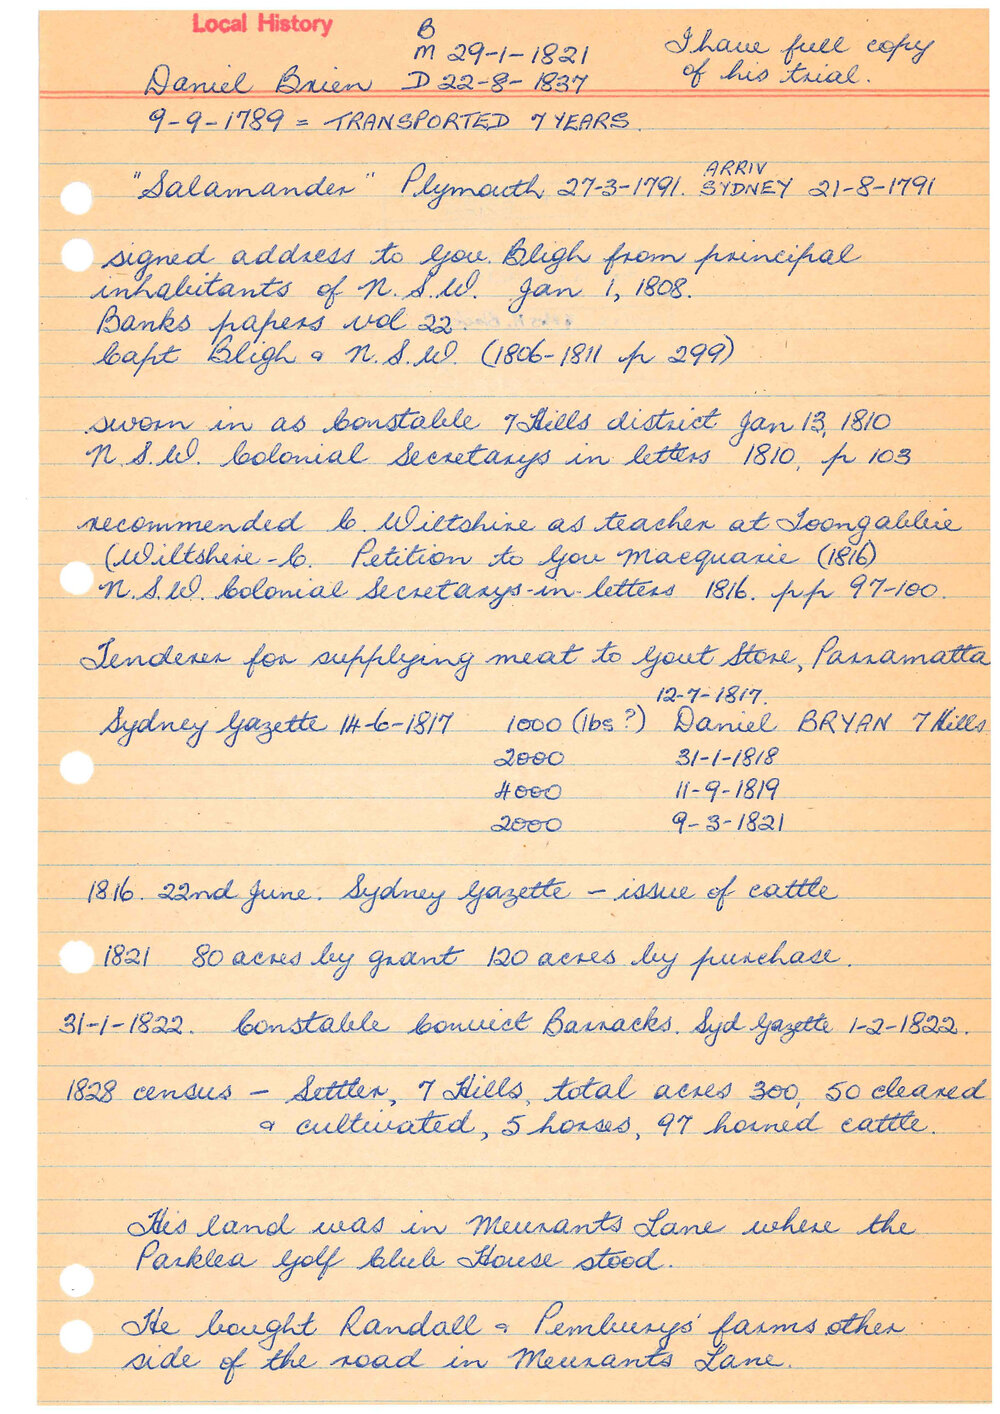 Local History
B
M 29-1-1821
I have full copy
of his trial.
Daniel Brien D 22-8-1837
9-9-1789 = TRANSPORTED 7 YEARS.
"Salamander" Plymouth 27-3-1791. ARRIV SYDNEY 21-8-1791
signed address to Gov. Bligh from principal
inhabitants of N.S.W. Jan 1, 1808.
Banks papers vol 22.
Capt Bligh & N.S.W. (1806-1811 p 299)
sworn in as Constable 7 Hills district Jan 13, 1810
N.S.W. Colonial Secretarys in letters 1810, p 103
recommended C. Wiltshire as teacher at Toongabbie
(Wiltshire-C. Petition to Gov Macquarie (1816)
N.S.W. Colonial Secretarys-in-letters 1816. pp 97-100.
Tenderer for supplying meat to Govt Store, Parramatta
12-7-1817.
Sydney Gazette 14-6-1817 1000 (lbs?) Daniel BRYAN 7 Hills
2000 31-1-1818
4000 11-9-1819
2000 9-3-1821
1816. 22nd June. Sydney Gazette - issue of cattle
1821 80 acres by grant 120 acres by purchase.
31-1-1822. Constable Convict Barracks. Syd Gazette 1-2-1822.
1828 census - Settler, 7 Hills, total acres 300, 50 cleared
& cultivated, 5 horses, 97 horned cattle.
His land was in Meurants Lane where the
Parklea Golf Club House stood.
He bought Randall & Pemburys' farms other
side of the road in Meurants Lane.